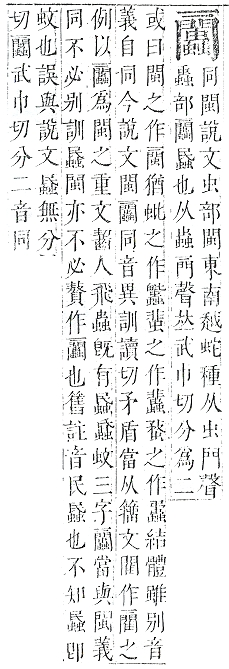 同閩說文虫部閩東南越蛇種从虫門聲
䖵部蟁也从䖵聲𠀤武巾切分爲二
或曰閩之作猶蚍之作蜚之作蝥之作蟊結體雖別音
義自同今說文閩同音異訓讀切矛盾當从籀文作之
例以爲閩之重文齧人飛蟲旣有蟁蚊三字當與閩義
同不必別訓蟁閩亦不必贅作也舊註音民蟁也不知蟁卽
蚊也誤與說文蟁無分
切武巾切分二音同